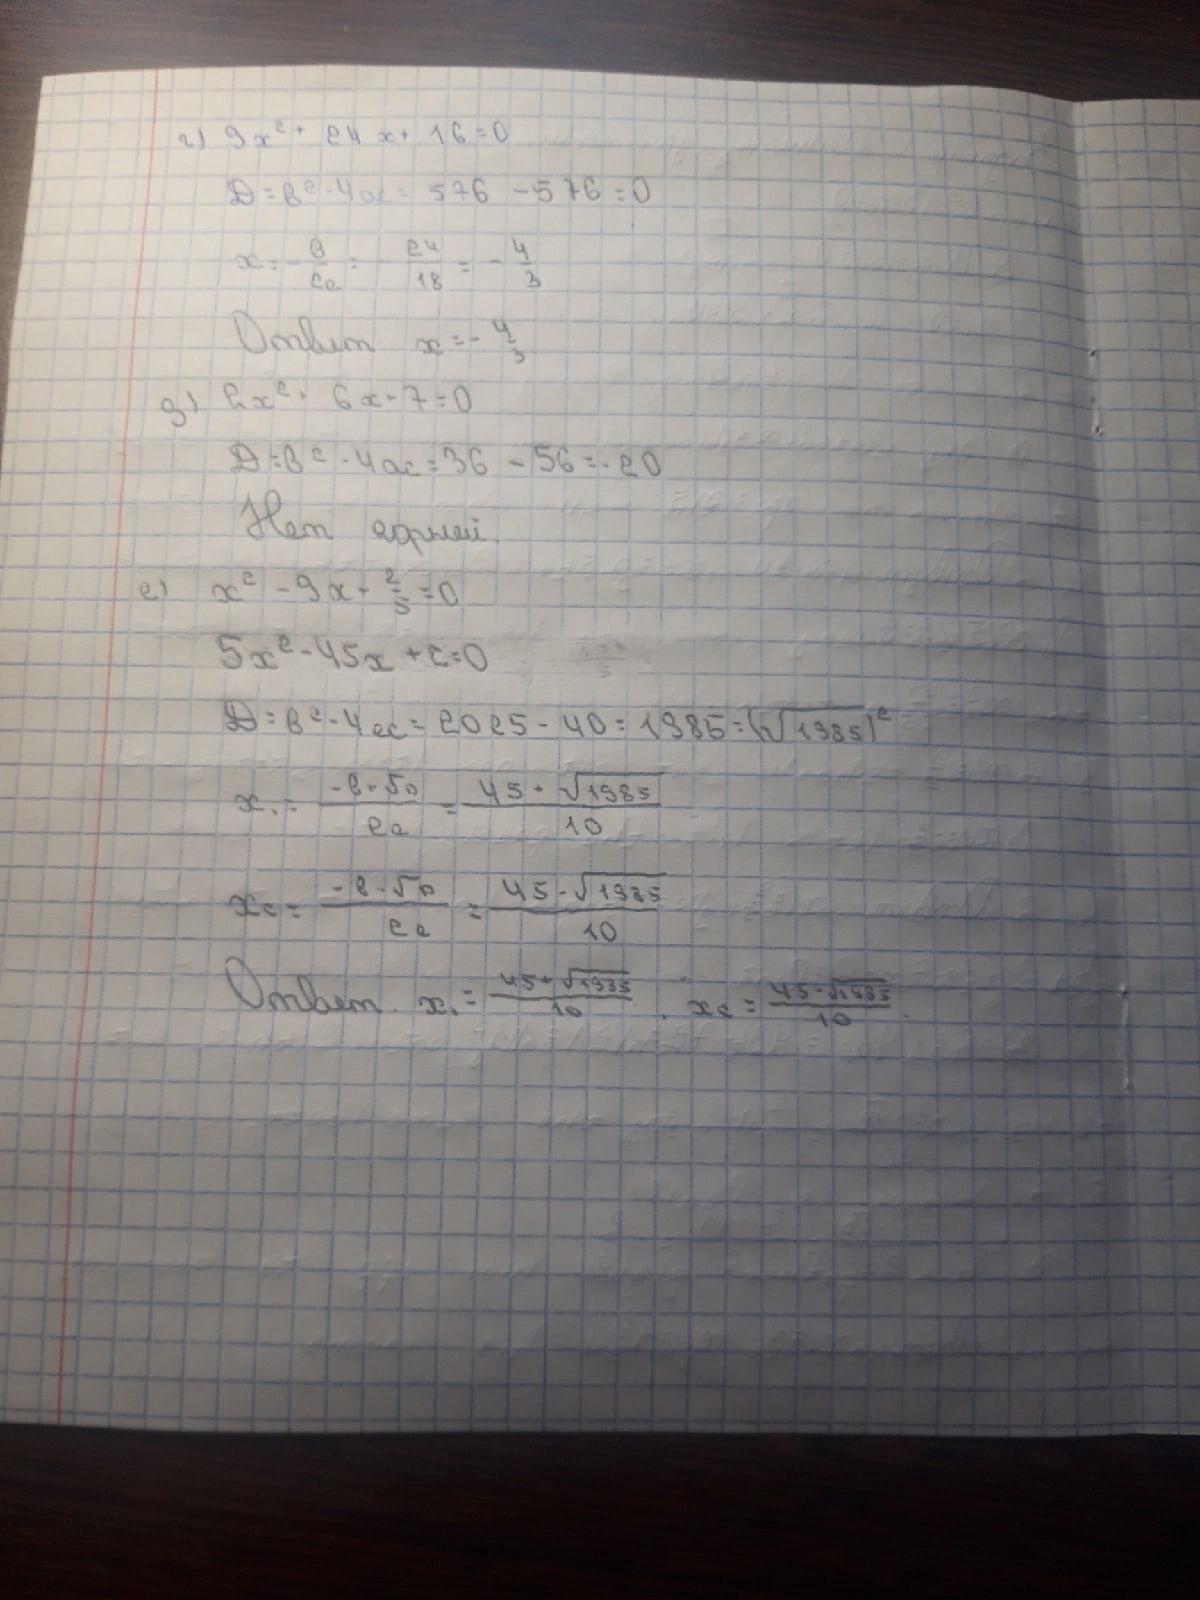 г) 9x² + 24x + 16 = 0
D = b² - 4ac = 576 - 576 = 0
x = -b/2a = -24/18 = -4/3
Ответ x = -4/3
д) 2x² + 6x + 7 = 0
D = b² - 4ac = 36 - 56 = -20
Нет корней.
е) x² - 9x + 2/5 = 0
5x² - 45x + 2 = 0
D = b² - 4ac = 2025 - 40 = 1985 = (√1985)²
x₁ = (-b + √D)/2a = (45 + √1985)/10
x₂ = (-b - √D)/2a = (45 - √1985)/10
Ответ. x₁ = (45 + √1985)/10, x₂ = (45 - √1985)/10.